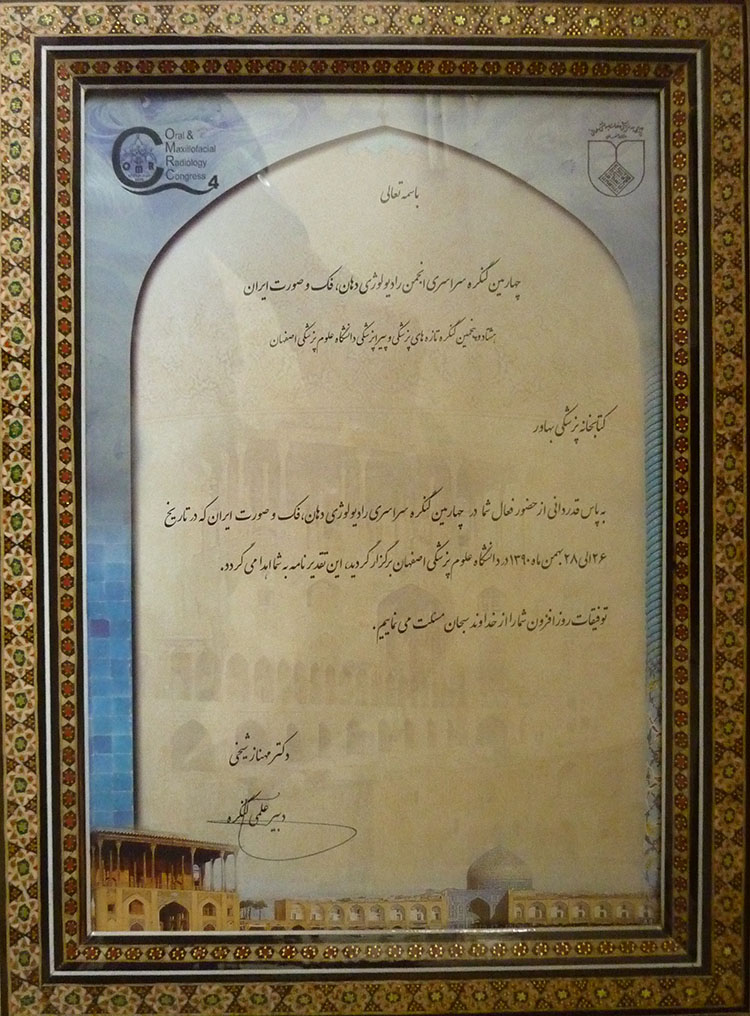 Oral &
Maxillofacial
Radiology
Congress
4
باسمه تعالی
چهارمین کنگره سراسری انجمن رادیولوژی دهان، فک و صورت ایران
هشتاد و پنجمین کنگره تازه های پزشکی و پیراپزشکی دانشگاه علوم پزشکی اصفهان
کتابخانه پزشکی بهادر
به پاس قدردانی از حضور فعال شما در چهارمین کنگره سراسری رادیولوژی دهان، فک و صورت ایران که در تاریخ
۲۶ الی ۲۸ بهمن ماه ۱۳۹۰ در دانشگاه علوم پزشکی اصفهان برگزار گردید، این تقدیر نامه به شما اهدا می گردد.
توفیقات روز افزون شما را از خداوند سبحان مسئلت می نماییم.
دکتر مهناز شیخی
دبیر علمی کنگره